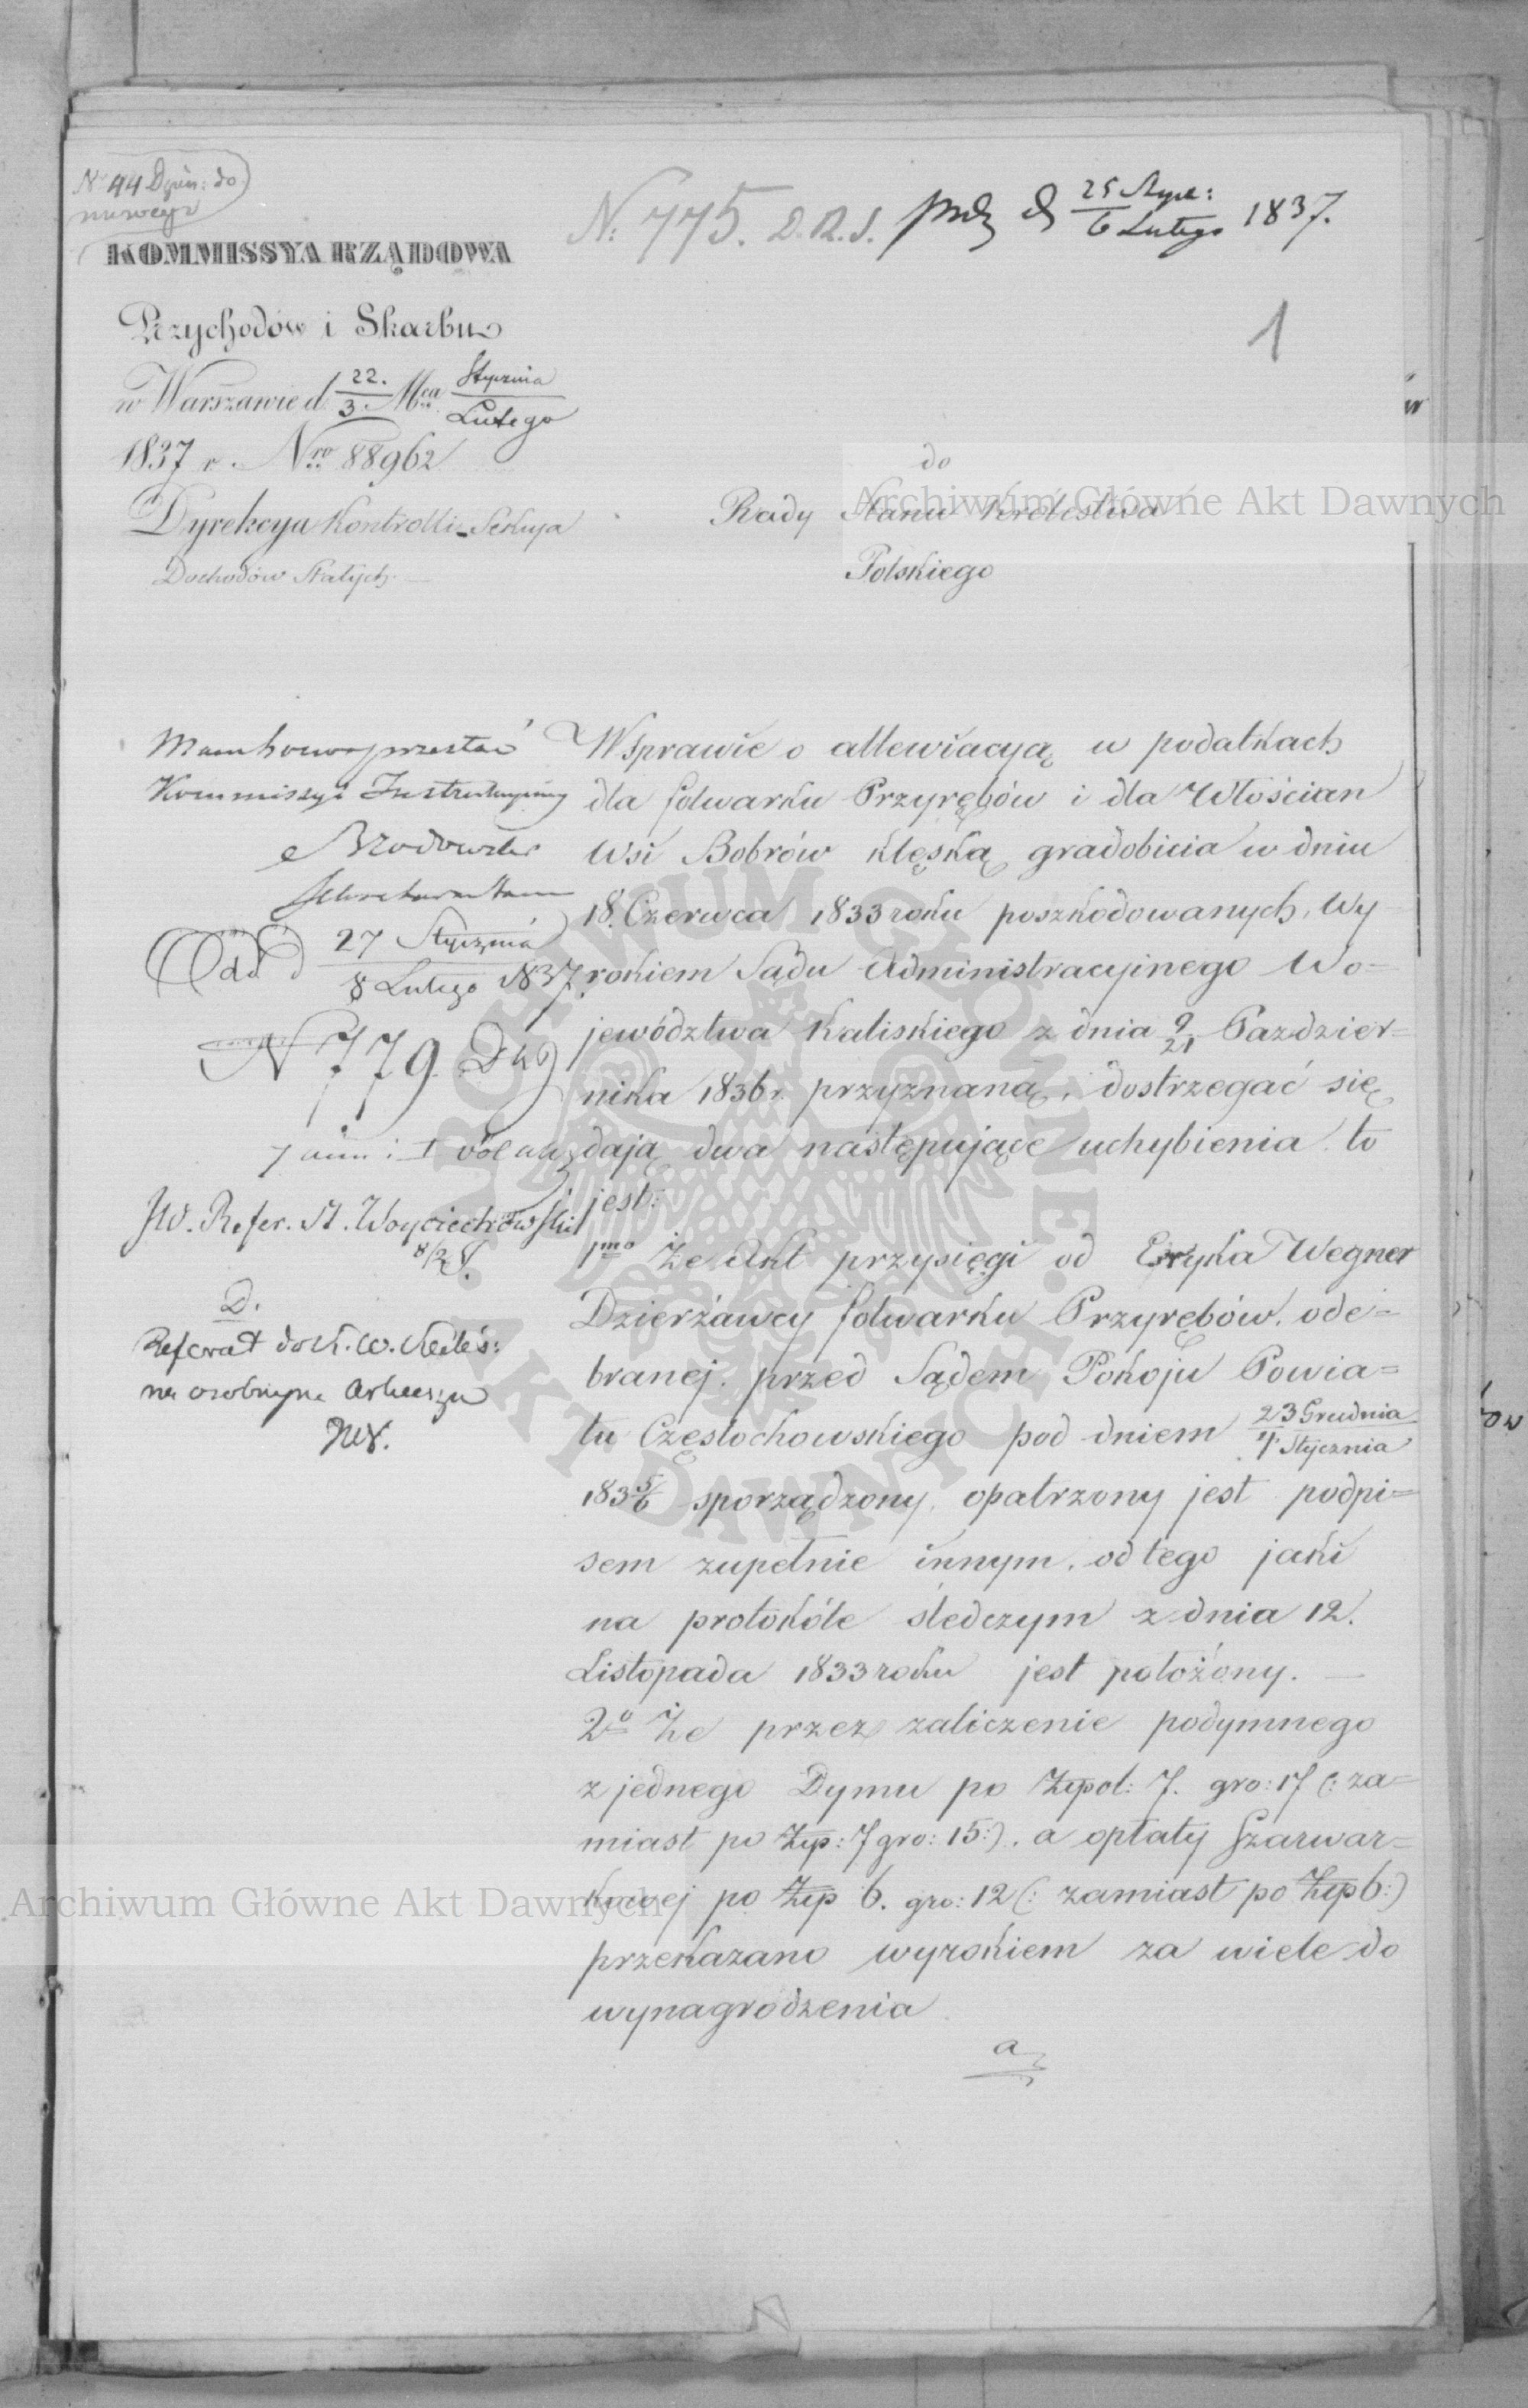 N 44 Dzien: do
N: 775. D.R.S. prdz d 25 Stycz: / 6 Lutego 1837.
KOMMISSYA RZĄDOWA
Przychodów i Skarbu
w Warszawie d. 22. / 3. Mca Stycznia / Lutego
1837 r. Nro 88962
Dyrekcya Kontrolli Sekcya
Dochodów Stałych.
1
do
Rady Stanu Królestwa
Polskiego
Archiwum Główne Akt Dawnych
przesłać
Kommissyi Instrukcyiney
Odd d 27 Stycznia / 8 Lutego 1837.
N 779
JW. Refer. St. Woyciechowski
8/2
D.
Referat do
na osobnym Arkuszu
W sprawie o allewiacyją w podatkach
dla folwarku Przyrębów i dla Włościan
Wsi Bobrów klęską gradobicia w dniu
18. Czerwca 1833 roku poszkodowanych, Wy-
rokiem Sądu Administracyjnego Wo=
jewództwa Kaliskiego z dnia 9/21 Pazdzier=
nika 1836 r. przyznaną, dostrzegać się
dają dwa następujące uchybienia to
jest:
1mo Że Akt przysięgi od Eryka Wegner
Dzierżawcy folwarku Przyrębów, ode=
branej przed Sądem Pokoju Powia=
tu Częstochowskiego pod dniem 23 Grudnia / 4 Stycznia
1835/6 sporządzony, opatrzony jest podpi=
sem zupełnie innym, od tego jaki
na protokóle śledczym z dnia 12.
Listopada 1833 roku jest położony. —
2o Że przez zaliczenie podymnego
z jednego Dymu po Złpol: 7. gro: 17 (: za=
miast po Złp: 7 gro: 15:), a opłaty Szarwar=
kowej po Złp 6. gro: 12 (: zamiast po Złp 6:)
przekazano wyrokiem za wiele do
wynagrodzenia
a
Archiwum Główne Akt Dawnych
ARCHIWUM GŁÓWNE AKT DAWNYCH